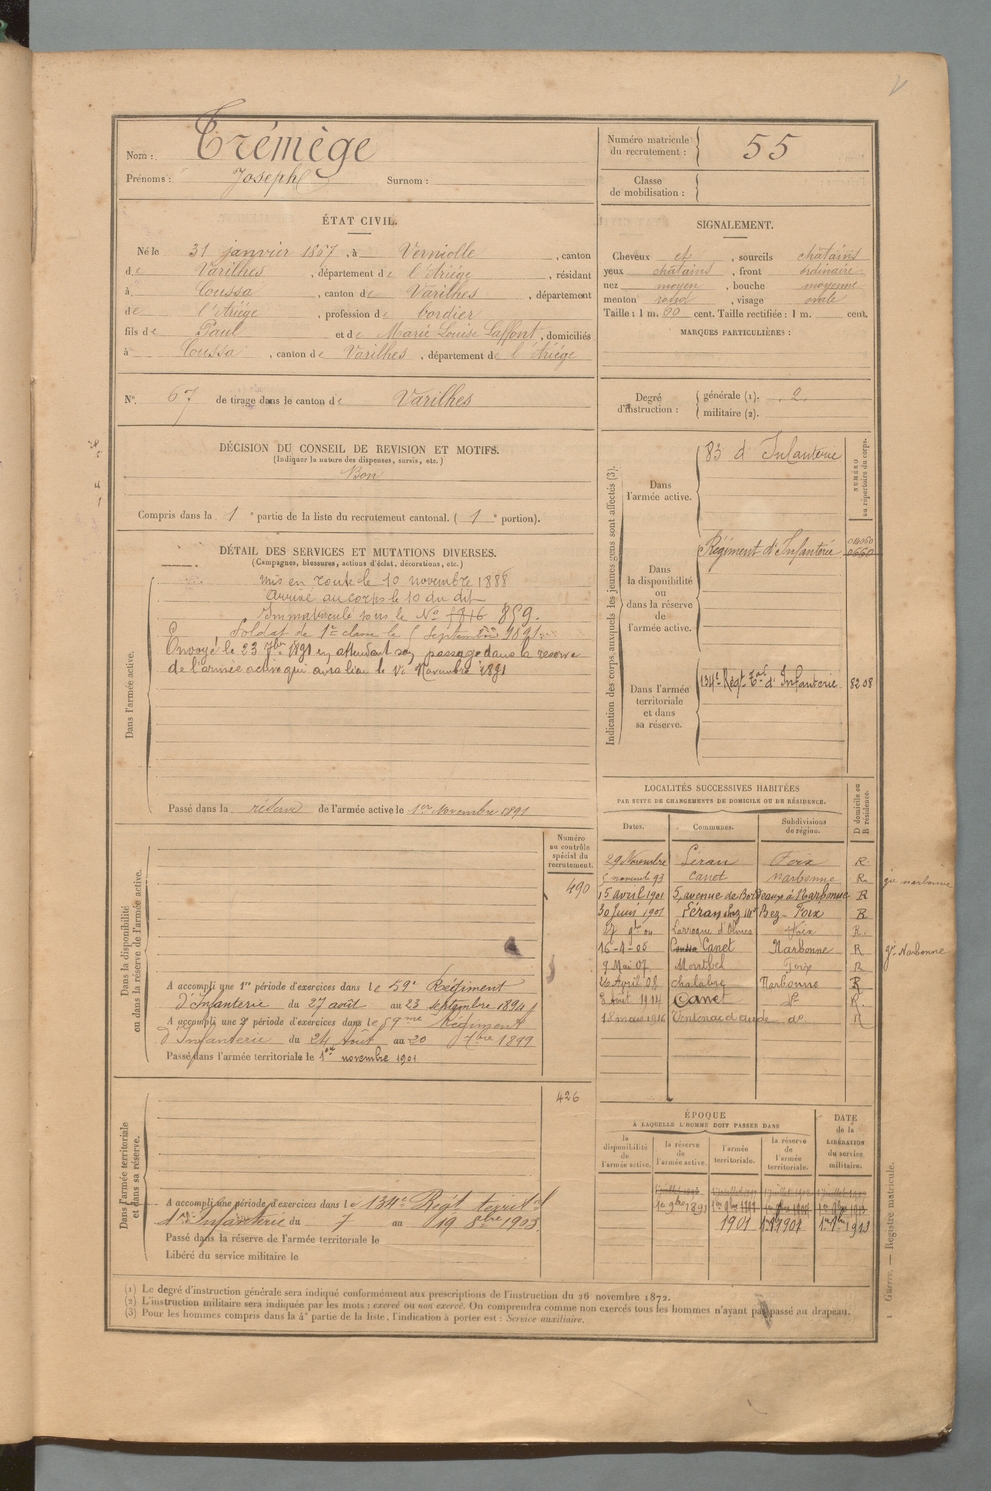 Nom : Trémège
Prénoms : Joseph Surnom :
Numéro matricule du recrutement : 55
Classe de mobilisation :
ÉTAT CIVIL.
Né le 31 janvier 1867, à Verniolle, canton
de Varilhes, département de l'Ariége, résidant
à Coussa, canton de Varilhes, département
de l'Ariége, profession de cordier
fils de Paul et de Marie Louise Laffont, domiciliés
à Coussa, canton de Varilhes, département de l'Ariége
N° 67 de tirage dans le canton de Varilhes
SIGNALEMENT.
Cheveux et, sourcils chatains
yeux chatains, front ordinaire
nez moyen, bouche moyenne
menton rond, visage ovale
Taille : 1 m. 60 cent. Taille rectifiée : 1 m. cent.
MARQUES PARTICULIÈRES :
Degré d'instruction : générale (1). 2
militaire (2).
DÉCISION DU CONSEIL DE REVISION ET MOTIFS.
(Indiquer la nature des dispenses, sursis, etc.)
Bon
Compris dans la 1e partie de la liste du recrutement cantonal. (1e portion).
DÉTAIL DES SERVICES ET MUTATIONS DIVERSES.
(Campagnes, blessures, actions d'éclat, décorations, etc.)
Dans l'armée active.
Mis en route le 10 novembre 1888
Arrivé au corps le 10 du dit
Immatriculé sous le No 1816 859.
Soldat de 1re classe le septembre 1891
Envoyé le 23 7bre 1891 en attendant son passage dans la réserve
de l'armée active qui aura lieu le 1er Novembre 1891
Passé dans la réserve de l'armée active le 1er novembre 1891
Indication des corps auxquels les jeunes gens sont affectés (3).
NUMÉRO au répertoire du corps.
Dans l'armée active.
83 d'Infanterie
Dans la disponibilité ou dans la réserve de l'armée active.
Régiment d'Infanterie
Dans l'armée territoriale et dans sa réserve.
134e Régt Tal d'Infanterie 8208
LOCALITÉS SUCCESSIVES HABITÉES
PAR SUITE DE CHANGEMENTS DE DOMICILE OU DE RÉSIDENCE.
Dates. Communes. Subdivisions de région. D domicile ou R résidence.
29 Novembre Léran Foix R
5 novemb 93 Canet Narbonne R gie narbonne
15 avril 1901 5, avenue de Bordeaux à Narbonne R
30 Juin 1901 Léran chez Mr Bez - Foix R
Larroque d'Olmes Foix R
16-4-05 Canet Narbonne R gie Narbonne
9 Mai 07 Montbel Foix R
26 Avril 08 Chalabre Narbonne R
Août 1914 Canet do R
18 mars 1916 Ventenac d'aude do R
Dans la disponibilité ou dans la réserve de l'armée active.
Numéro au contrôle spécial du recrutement.
490
A accompli une 1re période d'exercices dans le 59e Régiment
d'Infanterie du 27 août au 23 septembre 1894
A accompli une 2e période d'exercices dans le 59me Régiment
d'Infanterie du 24 Août au 20 7bre 1899
Passé dans l'armée territoriale le 1er novembre 1901
Dans l'armée territoriale et dans sa réserve.
426
A accompli une période d'exercices dans le 134e Régt territal
d'Infanterie du 7 au 19 8bre 1903
Passé dans la réserve de l'armée territoriale le
Libéré du service militaire le
ÉPOQUE
A LAQUELLE L'HOMME DOIT PASSER DANS
la disponibilité de l'armée active.
la réserve de l'armée active.
l'armée territoriale.
la réserve de l'armée territoriale.
DATE de la LIBÉRATION du service militaire.
1er 9bre 1891
1901
(1) Le degré d'instruction générale sera indiqué conformément aux prescriptions de l'instruction du 26 novembre 1872.
(2) L'instruction militaire sera indiquée par les mots : exercé ou non exercé. On comprendra comme non exercés tous les hommes n'ayant pas passé au drapeau.
(3) Pour les hommes compris dans la 4e partie de la liste, l'indication à porter est : Service auxiliaire.
Guerre. — Registre matricule.